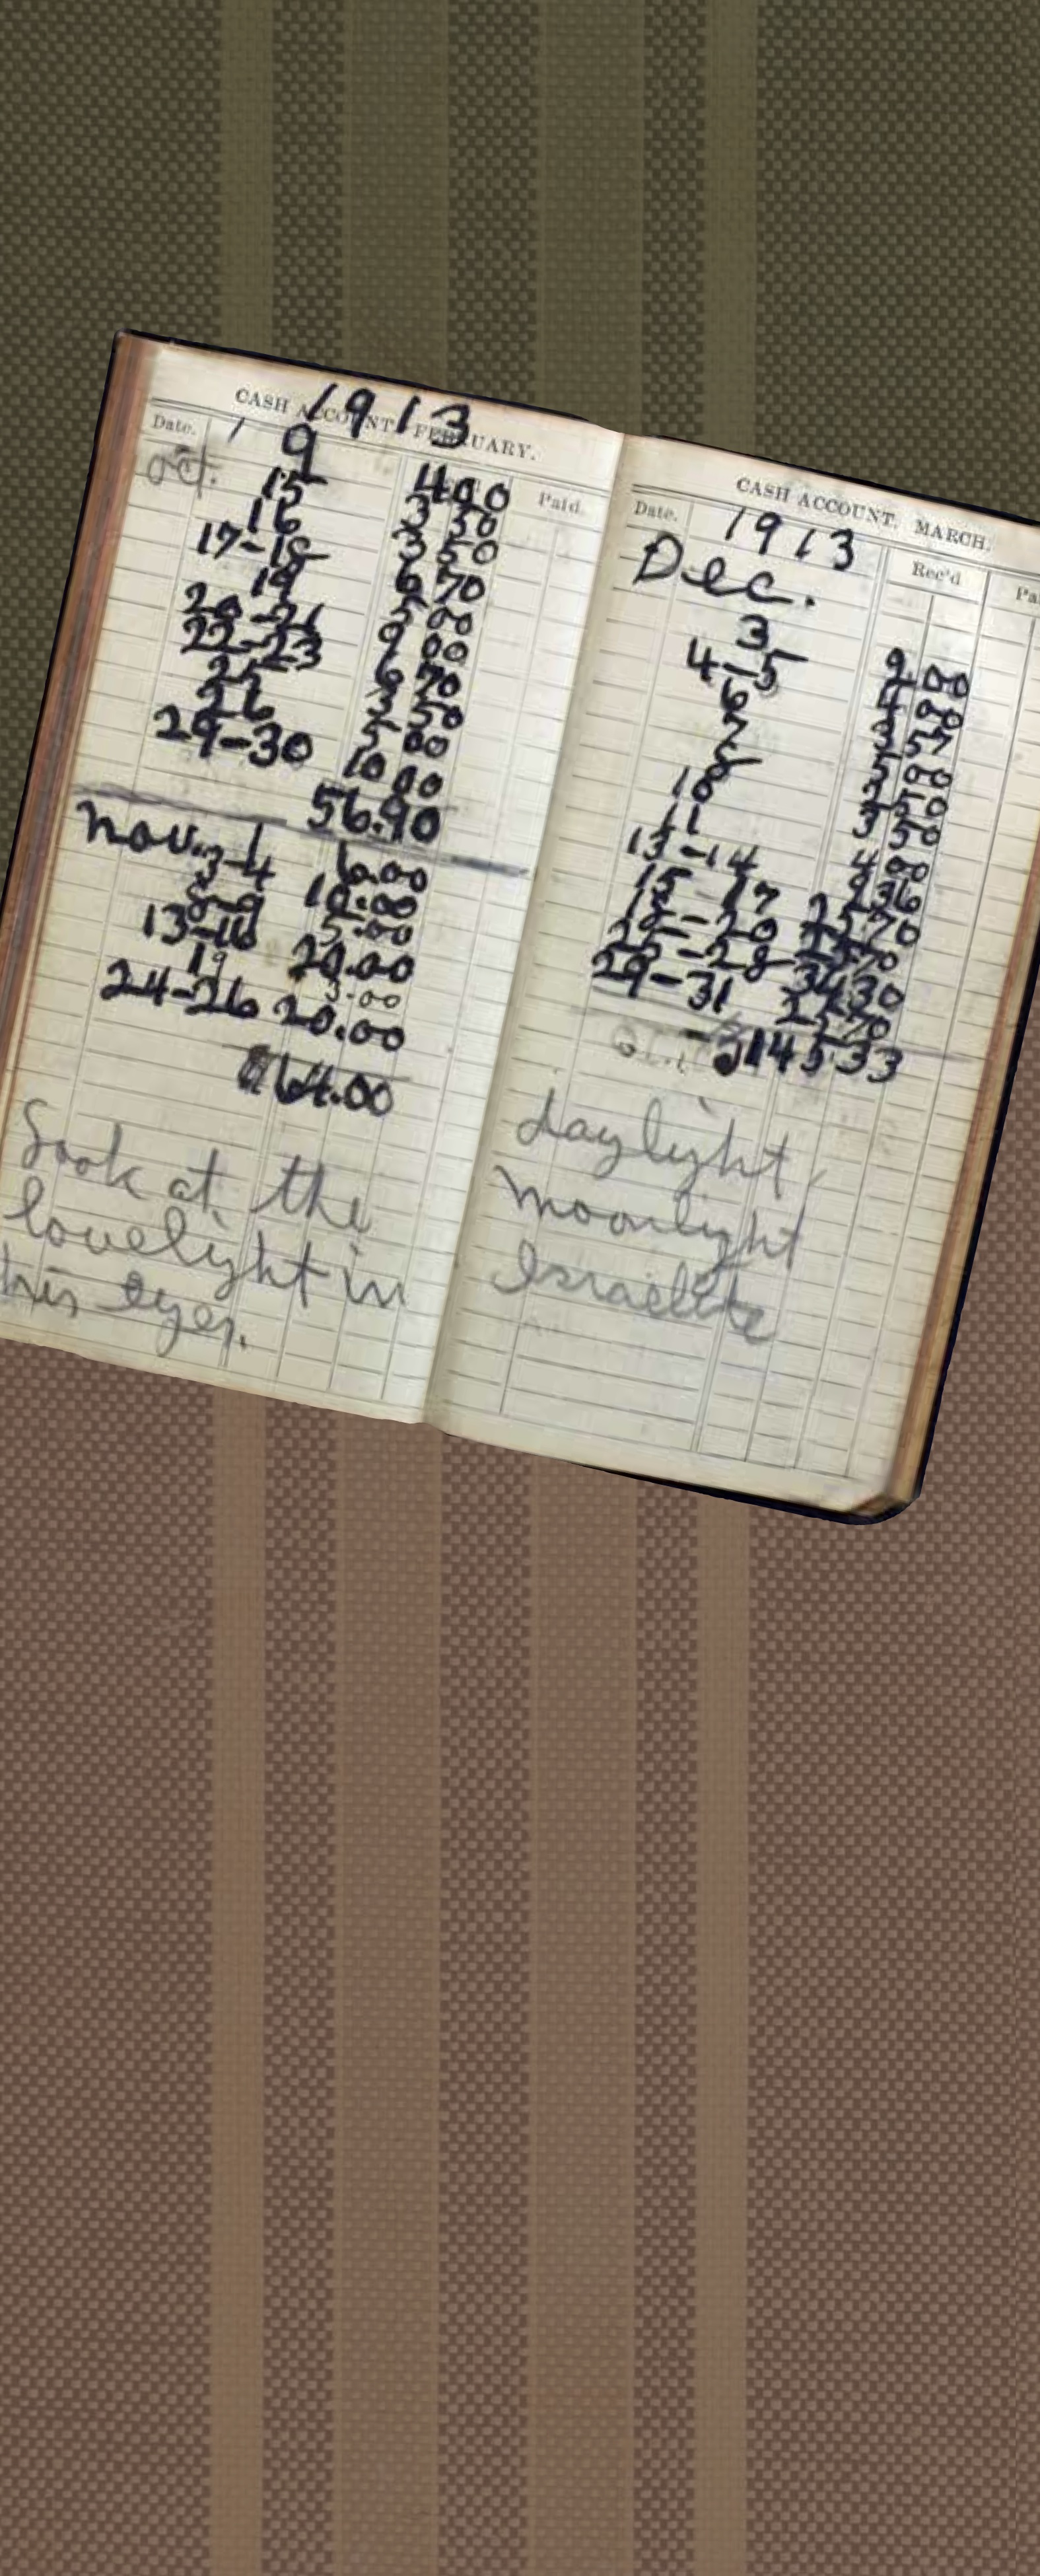 CASH ACCOUNT. FEBRUARY.
1913
Date.
Paid.
Oct. 9 4 00
15 3 50
16 3 50
17-18 6 70
19 5 00
20-21 9 00
22-23 6 70
25 3 50
26 5 00
29-30 10 00
56.90
Nov. 1 6.00
3-4 10.00
8-9 5.00
13-16 20.00
19 3.00
24-26 20.00
64.00
Look at the
lovelight in
his eyes.
CASH ACCOUNT. MARCH.
Date. 1913
Rec'd
Dec.
3 9 00
4-5 4 00
6 3 57
7 5 00
8 3 50
10 3 50
11 4 00
13-14 9 36
15-17 25 70
18-20 25 70
25-28 34 30
29-31 25 70
145 33
daylight
moonlight
Israelite